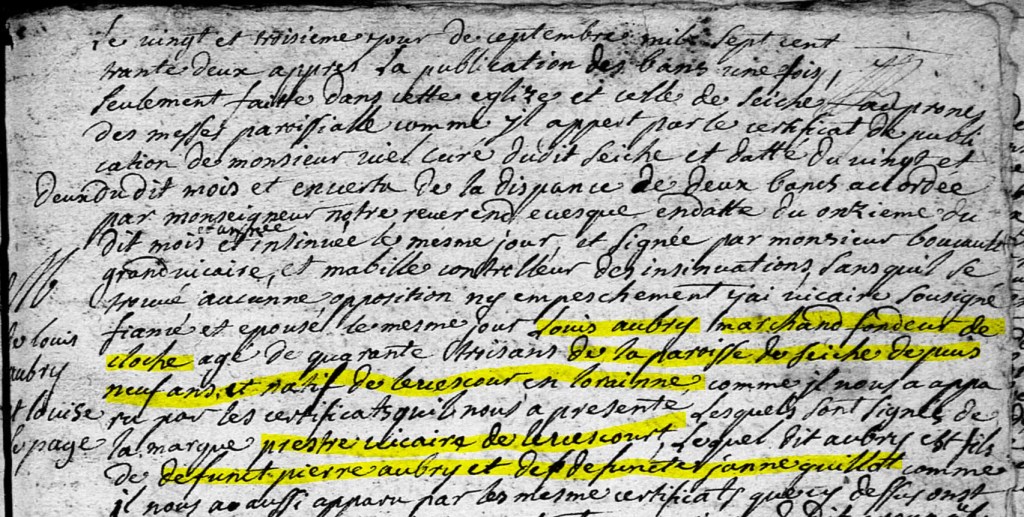 Le vingt et troisieme jour de ceptembre mil sept cent
trante deux appres la publication des bans une fois,
seulement faitte dans cette eglize et celle de seiche aux prones
des messes paroissialle comme yl appert par le certificat de publi
cation de monsieur curé dudit seiche et datté du vingt et
deux dudit mois et en vertu de la dispance de deux bancs accordée
par monseigneur notre reverend evesque endatte du onzieme du
dit mois et année et insinuée le mesme jour, et signée par monsieur boucault
grand vicaire, et mabille controlleur des insinuations, sans quil se
trouvé aucunne opposition ny empeschement j'ai vicaire sousigné
fiancé et epousé le mesme jour louis aubry marchand fondeur de
cloche agé de quarante troisans de la paroisse de seiche depuis
neuf ans, et natif de levescour en lorainne comme jl nous a appa
ru par les certificats quil nous a presenté lesquels sont signée de
la marque prestre vicaire de levescourt, lequel dit aubry est fils
de defunct pierre aubry et de defuncte janne guillot comme
jl nous a aussi apparu par les mesme certificats que cy dessus
louis
aubry
et louise
lepage